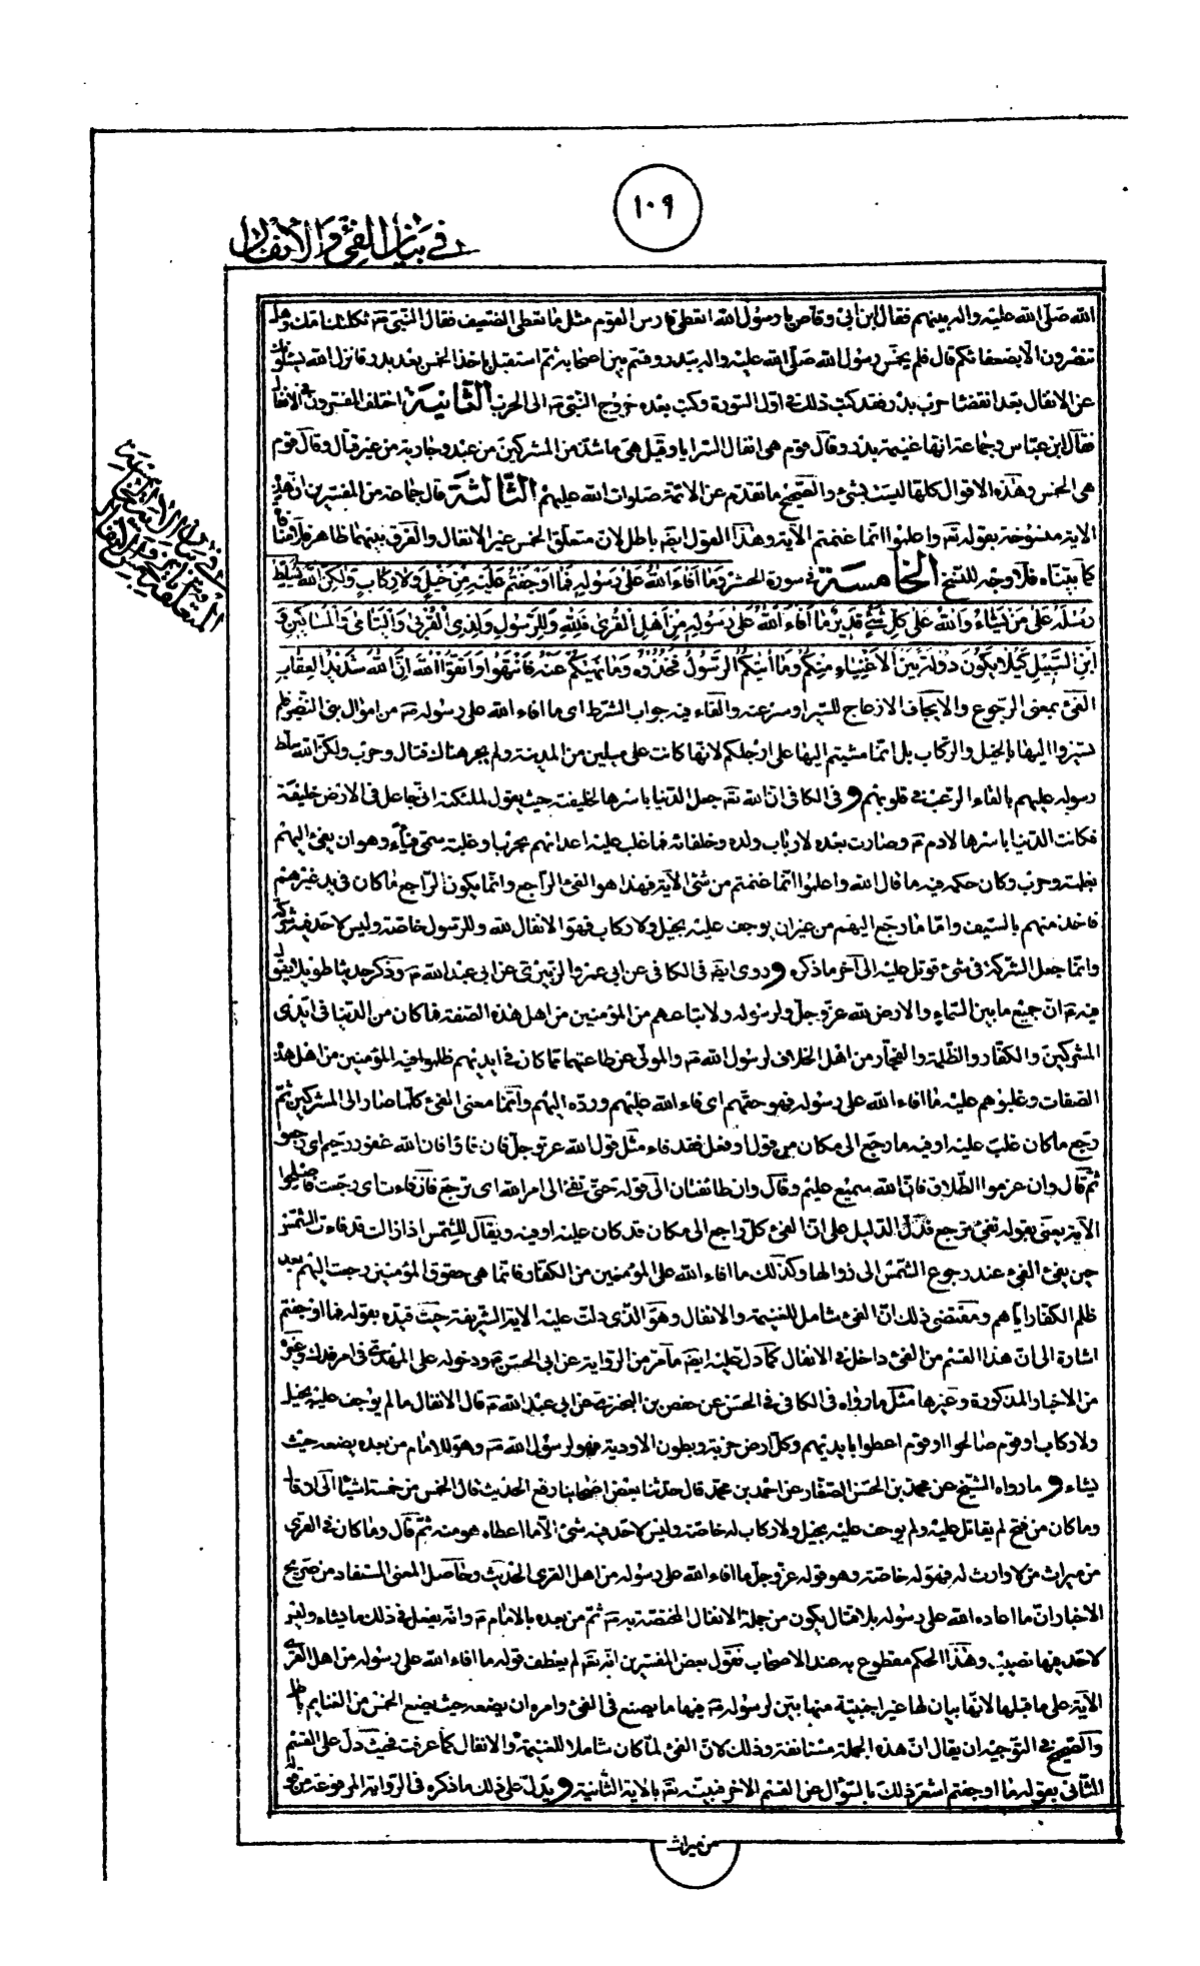 ١٠٩
في بيان الفئ والانفال
الله صلى الله عليه واله بينهم فقال ابن ابى وقاص يا رسول الله اتعطى فارس القوم مثل ما تعطى الضعيف فقال النبى ص ثكلتك امك وهل
تنصرون الا بضعفائكم قال فلم يخمس رسول الله صلى الله عليه واله ببدر وقسم بين اصحابه ثم استقبل ياخذ الخمس بعد بدر فانزل الله يسئلونك
عن الانفال بعد انقضاء حرب بدر فقد كتب ذلك فى اول السورة وكتب بعده خروج النبى ص الى الحرب الثانية اختلف المفسرون فى الانفال
فقال ابن عباس وجماعة انها غنيمة بدر وقال قوم هى انفال السرايا وقيل هى ما شذ من المشركين من عبد وجارية من غير قتال وقال قوم
هى الخمس وهذه الاقوال كلها ليست بشئ والصحيح ما تقدم عن الائمة صلوات الله عليهم الثالثة قال جماعة من المفسرين ان هذه
الاية منسوخة بقوله تع واعلموا انما غنمتم الآية وهذا القول ايضا باطل لان متعلق الخمس غير الانفال والفرق بينهما ظاهر
كما بيناه فلا وجه للنسخ الخامسة فى سورة الحشر وما افاء الله على رسوله فما اوجفتم عليه من خيل ولا ركاب ولكن الله يسلط
رسله على من يشاء والله على كل شئ قدير ما افاء الله على رسوله من اهل القرى فلله وللرسول ولذى القربى واليتامى والمساكين و
ابن السبيل كيلا يكون دولة بين الاغنياء منكم وما آتيكم الرسول فخذوه وما نهيكم عنه فانتهوا واتقوا الله ان الله شديد العقاب
الفئ بمعنى الرجوع والايجاف الازعاج للسير او سرعته والفاء فيه جواب الشرط اى ما افاء الله على رسوله ص من اموال بنى النضير لم
تسيروا اليها بالخيل والركاب بل انما مشيتم اليها على ارجلكم لانها كانت على ميلين من المدينة ولم يجر هناك قتال وحرب ولكن الله سلط
رسوله عليهم بالقاء الرعب فى قلوبهم و فى الكافى ان الله تع جعل الدنيا باسرها لخليفته حيث يقول لملئكته انى جاعل فى الارض خليفة
فكانت الدنيا باسرها لادم ع وصارت بعده لابرار ولده وخلفائه فما غلب عليه اعدائهم بحرب او غلبة سمى فيئا وهو ان يفئ اليهم
بغلبة وحرب وكان حكمه فيه ما قال الله واعلموا انما غنمتم من شئ الآية فهذا هو الفئ الراجع وانما يكون الراجع ما كان فى يد غيرهم
فاخذ منهم بالسيف واما ما رجع اليهم من غير ان يوجف عليه بخيل ولا ركاب فهو الانفال لله وللرسول خاصة وليس لاحد فيه شركة
وانما جعل الشركة فى شئ قوتل عليه الى آخر ما ذكره و روى ايضا فى الكافى عن ابى عمرو الزبيرى عن ابى عبد الله ع وذكر حديثا طويلا يقول
فيه ع ان جميع ما بين السماء والارض لله عز وجل ولرسوله ولاتباعهم من المؤمنين من اهل هذه الصفة فما كان من الدنيا فى ايدى
المشركين والكفار والظلمة والفجار من اهل الخلاف لرسول الله ص والمولى عن طاعتهما مما كان فى ايديهم ظلموا فيه المؤمنين من اهل هذه
الصفات وغلبوهم عليه ما افاء الله على رسوله فهو حقهم اى فاء الله عليهم ورده اليهم وانما معنى الفئ كلما صار الى المشركين ثم
رجع ما كان غلب عليه او فيه ما رجع الى مكان من قول او فعل فقد فاء مثل قول الله عز وجل فان فاؤا فان الله غفور رحيم اى رجعوا
ثم قال وان عزموا الطلاق فان الله سميع عليم وقال وان طائفتان الى قوله حتى تفئ الى امر الله اى ترجع فان فاءت اى رجعت فاصلحوا
الآية يعنى بقوله تفئ ترجع فذلك الدليل على ان الفئ كل راجع الى مكان قد كان عليه او فيه ويقال للشمس اذا زالت قد فاءت الشمس
حين يفئ الفئ عند رجوع الشمس الى زوالها وكذلك ما افاء الله على المؤمنين من الكفار فانما هى حقوق المؤمنين رجعت اليهم بعد
ظلم الكفار اياهم ومقتضى ذلك ان الفئ شامل للغنيمة والانفال وهو الذى دلت عليه الاية الشريفة حيث قيده بقوله فما اوجفتم
اشارة الى ان هذا القسم من الفئ داخل فى الانفال كما دل عليه ايضا ما مر من الرواية عن ابى الحسن ع ودخوله على المهدى فى امر فدك وغيره
من الاخبار المذكورة وغيرها مثل ما رواه فى الكافى فى الحسن عن حفص بن البخترى عن ابى عبد الله ع قال الانفال ما لم يوجف عليه بخيل
ولا ركاب او قوم صالحوا او قوم اعطوا بايديهم وكل ارض خربة وبطون الاودية فهو لرسول الله ص وهو للامام من بعده يضعه حيث
يشاء و ما رواه الشيخ عن محمد بن الحسن الصفار عن احمد بن محمد قال حدثنا بعض اصحابنا رفع الحديث قال الخمس من خمسة اشياء الى ان قال
وما كان من فتح لم يقاتل عليه ولم يوجف عليه بخيل ولا ركاب له خاصة وليس لاحد فيه شئ الا ما اعطاه هو منه ثم قال وما كان فى القرى
من ميراث من لا وارث له فهو له خاصة وهو قوله عز وجل ما افاء الله على رسوله من اهل القرى الحديث وحاصل المعنى المستفاد من صريح
الاخبار ان ما اعاده الله على رسوله بلا قتال يكون من جملة الانفال المختصة به ص ثم من بعده بالامام ع وانه يفعل فى ذلك ما يشاء وليس
لاحد فيها نصيب وهذا الحكم مقطوع به عند الاصحاب فقول بعض المفسرين انه تع لم يعطف قوله ما افاء الله على رسوله من اهل القرى
الآية على ما قبلها لانها بيان لها غير اجنبية منها بين لرسوله ص فيها ما يصنع فى الفئ وامره ان يضعه حيث يضع الخمس من الغنايم باطل
والصحيح فى التوجيه ان يقال ان هذه الجملة مستانفة وذلك لان الفئ لما كان شاملا للغنيمة والانفال كما عرفت فحيث دل على القسم
الثانى بقوله فما اوجفتم اشعر ذلك بالسؤال عن القسم الاخر فبينه تع بالاية الثانية و يدل على ذلك ما ذكره فى الرواية المرفوعة من قوله
من ميراث